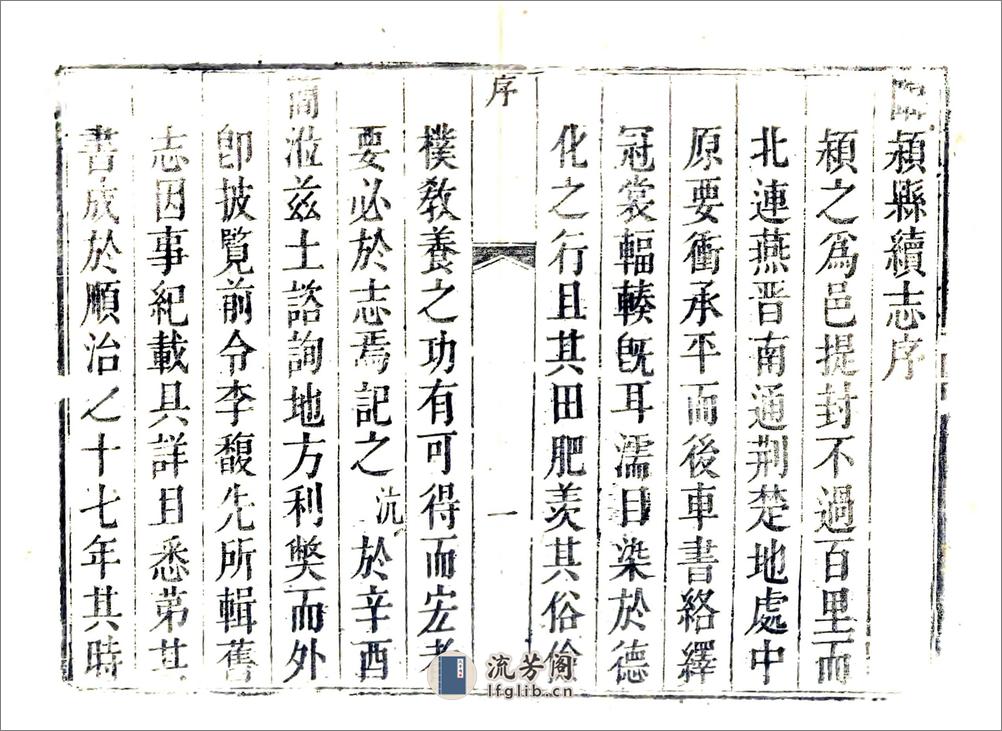 臨潁縣續志序
潁之為邑提封不過百里而
北連燕晋南通荆楚地處中
原要衝承平而後車書絡繹
冠裳輻輳旣耳濡目染於德
化之行且其田肥羡其俗儉
序
一
樸敎養之功有可得而宏者
要必於志焉記之沆於辛酉
蒞兹土諮詢地方利獘而外
卽披覽前令李馥先所輯舊
志因事紀載具詳且悉第其
書成於順治之十七年其時
流芳阁
lfglib.cn